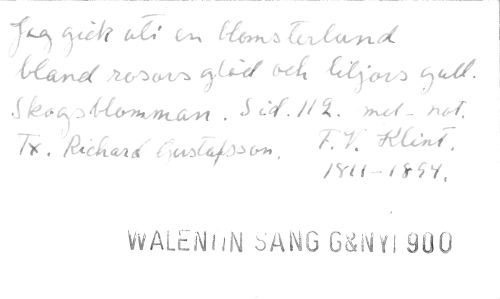 Jag gick uti en blomsterlund
bland rosors glöd och liljors gull.
Skogsblomman. Sid. 112. mel- not.
Tx. Richard Gustafsson. F. V. Klint.
1811-1894.
WALENTIN SANG G&NYT 900